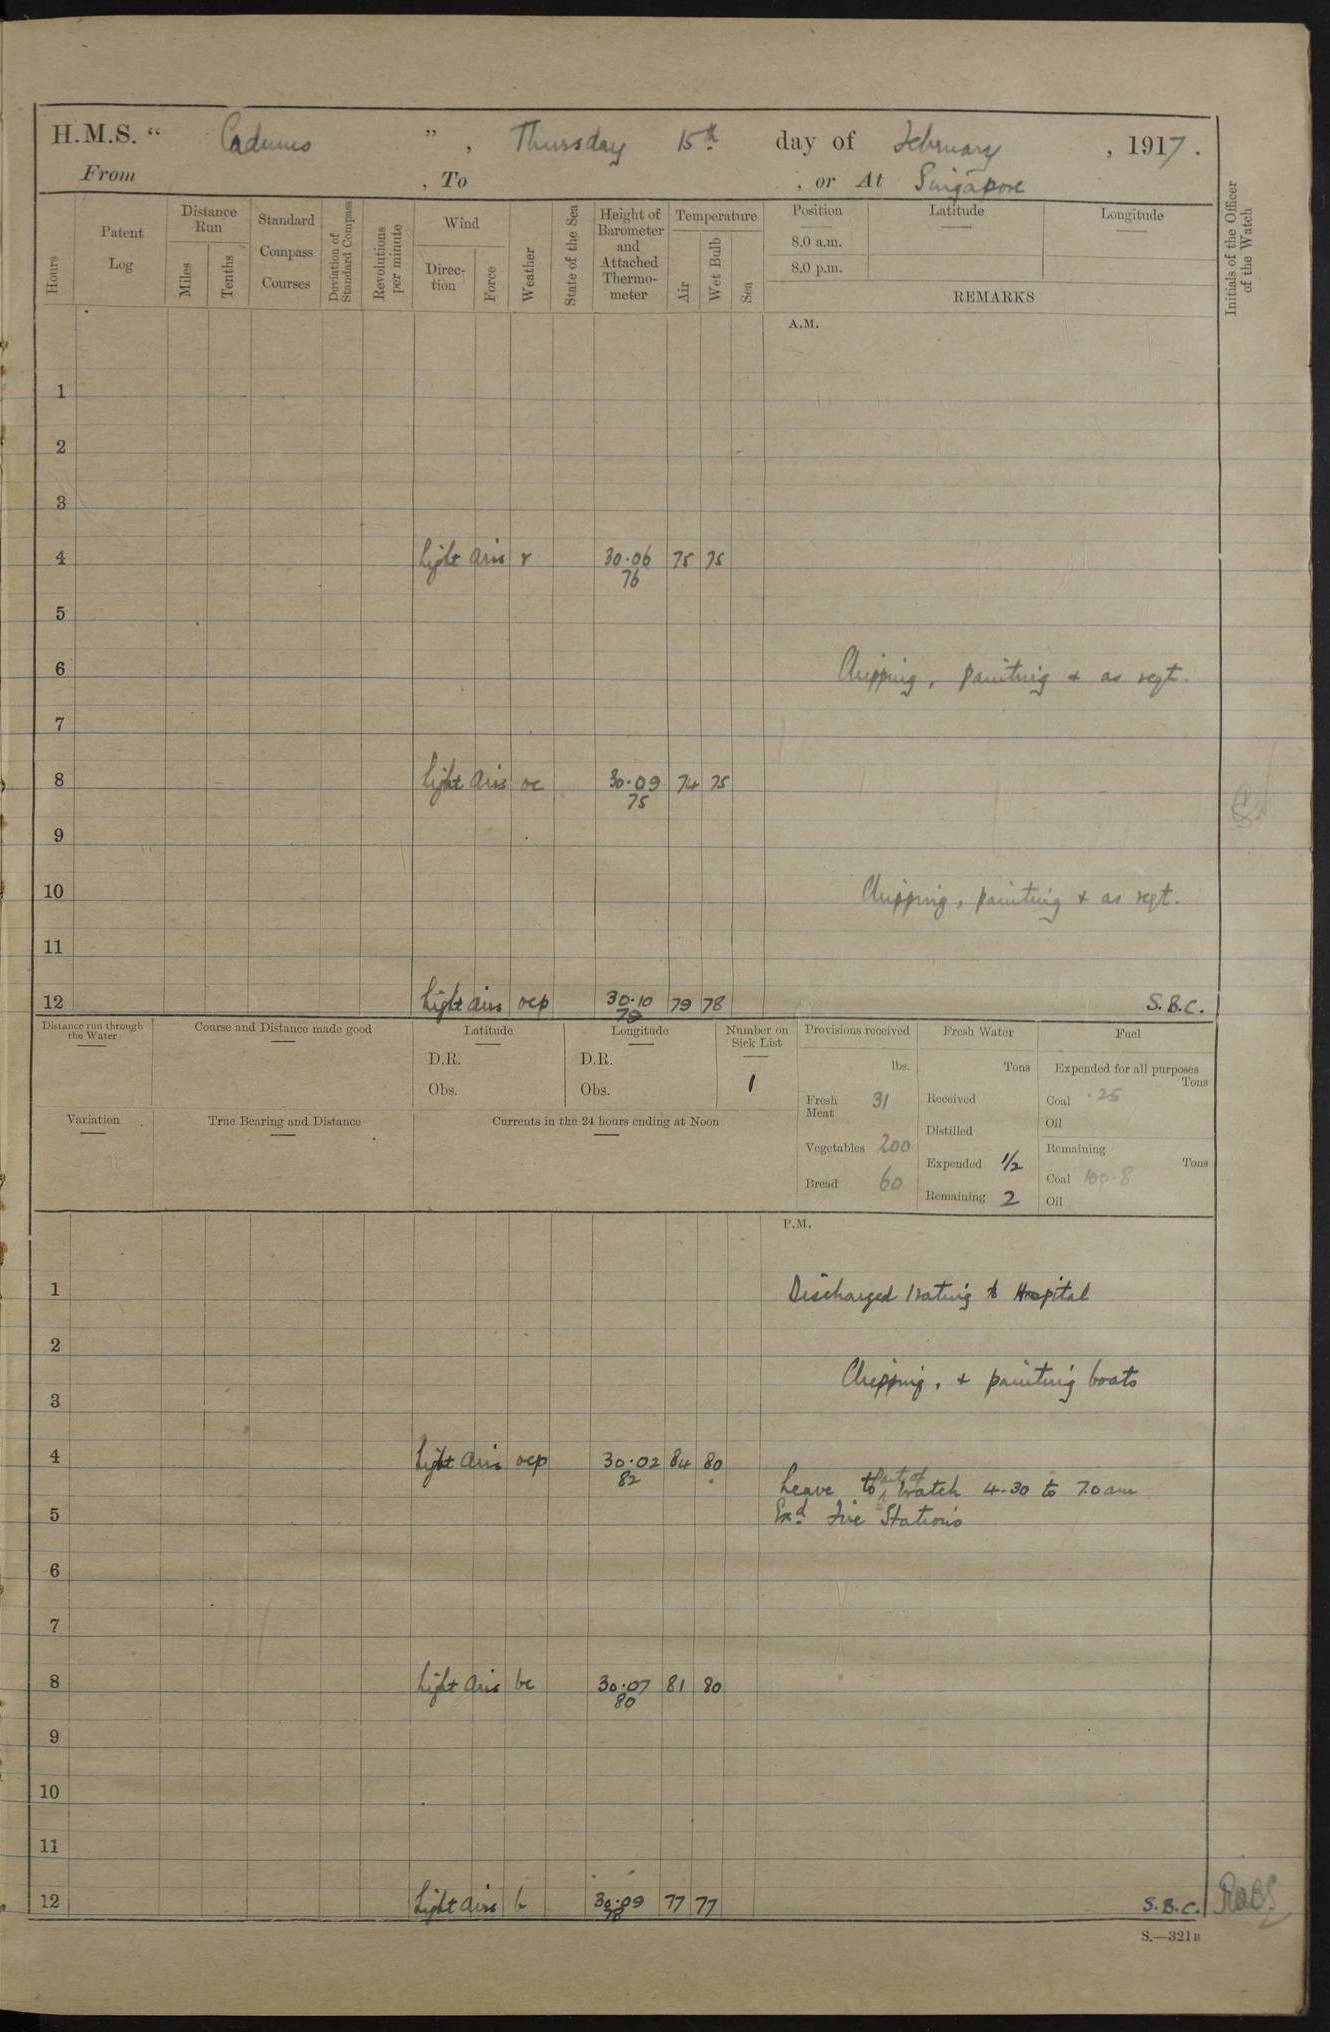 H.M.S. " Cadmus ", Thursday 15th day of February, 1917.
From , To , or At Singapore
Hours
Patent Log
Distance Run
Miles
Tenths
Standard Compass Courses
Deviation of Standard Compass
Revolutions per minute
Wind
Direction
Force
Weather
State of the Sea
Height of Barometer and Attached Thermometer
Temperature
Air
Wet Bulb
Sea
Position
Latitude
Longitude
8.0 a.m.
8.0 p.m.
REMARKS
Initials of the Officer of the Watch
A.M.
1
2
3
4 Light airs r 30.06 75 75
76
5
6 Chipping, painting & as reqt.
7
8 Light airs oc 30.09 74 75
75
9
10 Chipping, painting & as reqt.
11
12 Light airs ocp 30.10 79 78 S.B.C.
79
Distance run through the Water
Course and Distance made good
Latitude
D.R.
Obs.
Longitude
D.R.
Obs.
Number on Sick List
1
Provisions received
lbs.
Fresh Meat 31
Vegetables 200
Bread 60
Fresh Water
Tons
Received
Distilled
Expended 1/2
Remaining 2
Fuel
Expended for all purposes
Tons
Coal .25
Oil
Remaining
Tons
Coal 100.8
Oil
Variation
True Bearing and Distance
Currents in the 24 hours ending at Noon
P.M.
1 Discharged 1 rating to Hospital
2
Chipping, & painting boats
3
4 Light airs ocp 30.02 84 80
82
Leave to part of watch 4-30 to 7.0 am
5 Exd Fire Stations
6
7
8 Light airs bc 30.07 81 80
80
9
10
11
12 Light airs b 30.09 77 77 S.B.C.
78
S.—321B